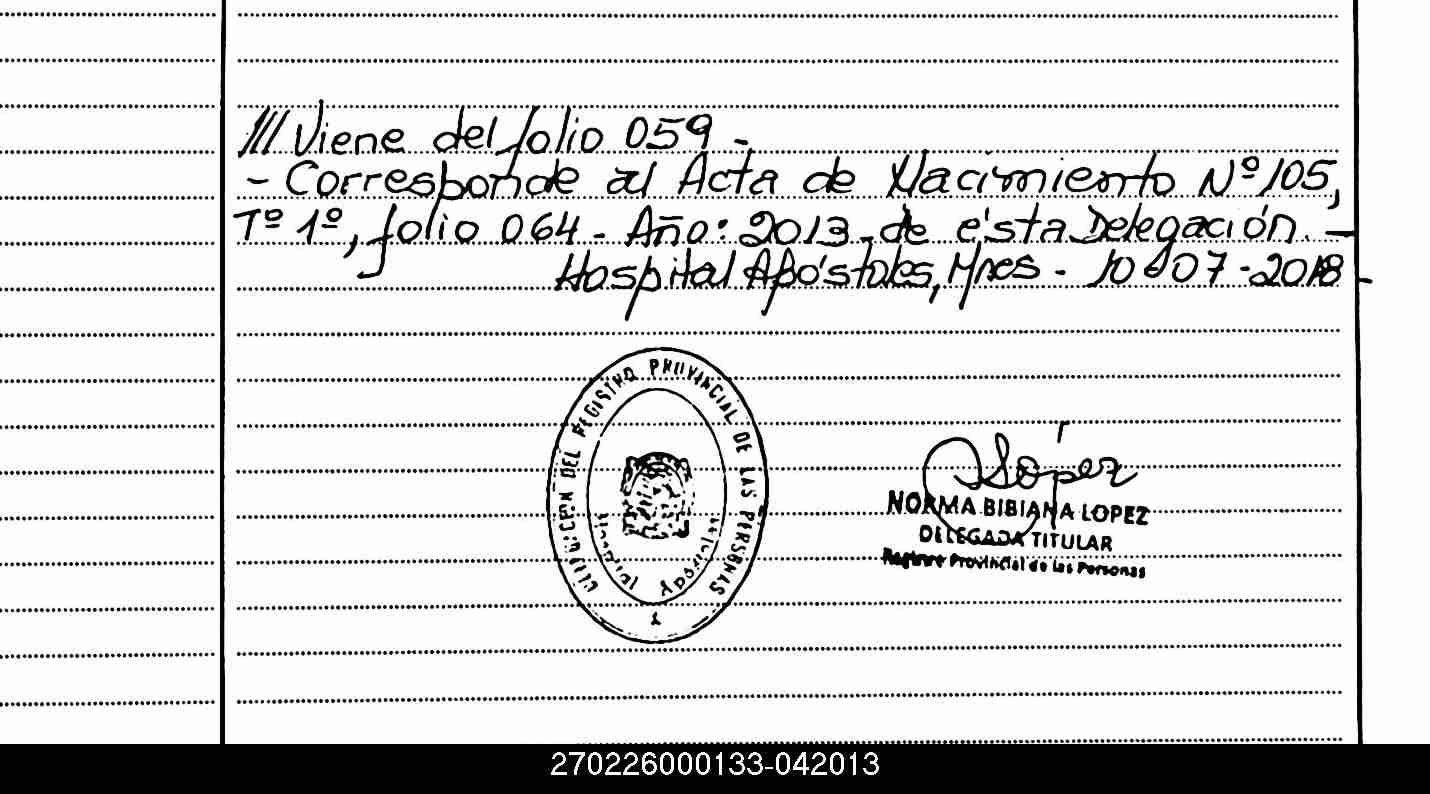 /// Viene del folio 059 -
- Corresponde al Acta de Nacimiento Nº 105,
Tº 1º, folio 064 - Año: 2013 - de ésta Delegación. -
Hospital Apóstoles, Mnes - 10-07-2018 -
DELEGACION DEL REGISTRO PROVINCIAL DE LAS PERSONAS
Hospital Apóstoles
López
NORMA BIBIANA LOPEZ
DELEGADA TITULAR
Registro Provincial de las Personas
270226000133-042013